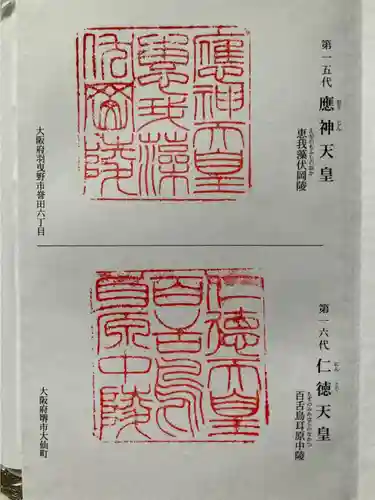 第一五代 應神天皇
おう じん
惠我藻伏岡陵
ゑがのもふしのおか
應神天皇
惠我藻
伏岡陵
大阪府羽曳野市誉田六丁目
第一六代 仁徳天皇
にん とく
百舌鳥耳原中陵
もずのみみはらのなかつ
仁徳天皇
百舌鳥
耳原中陵
大阪府堺市大仙町